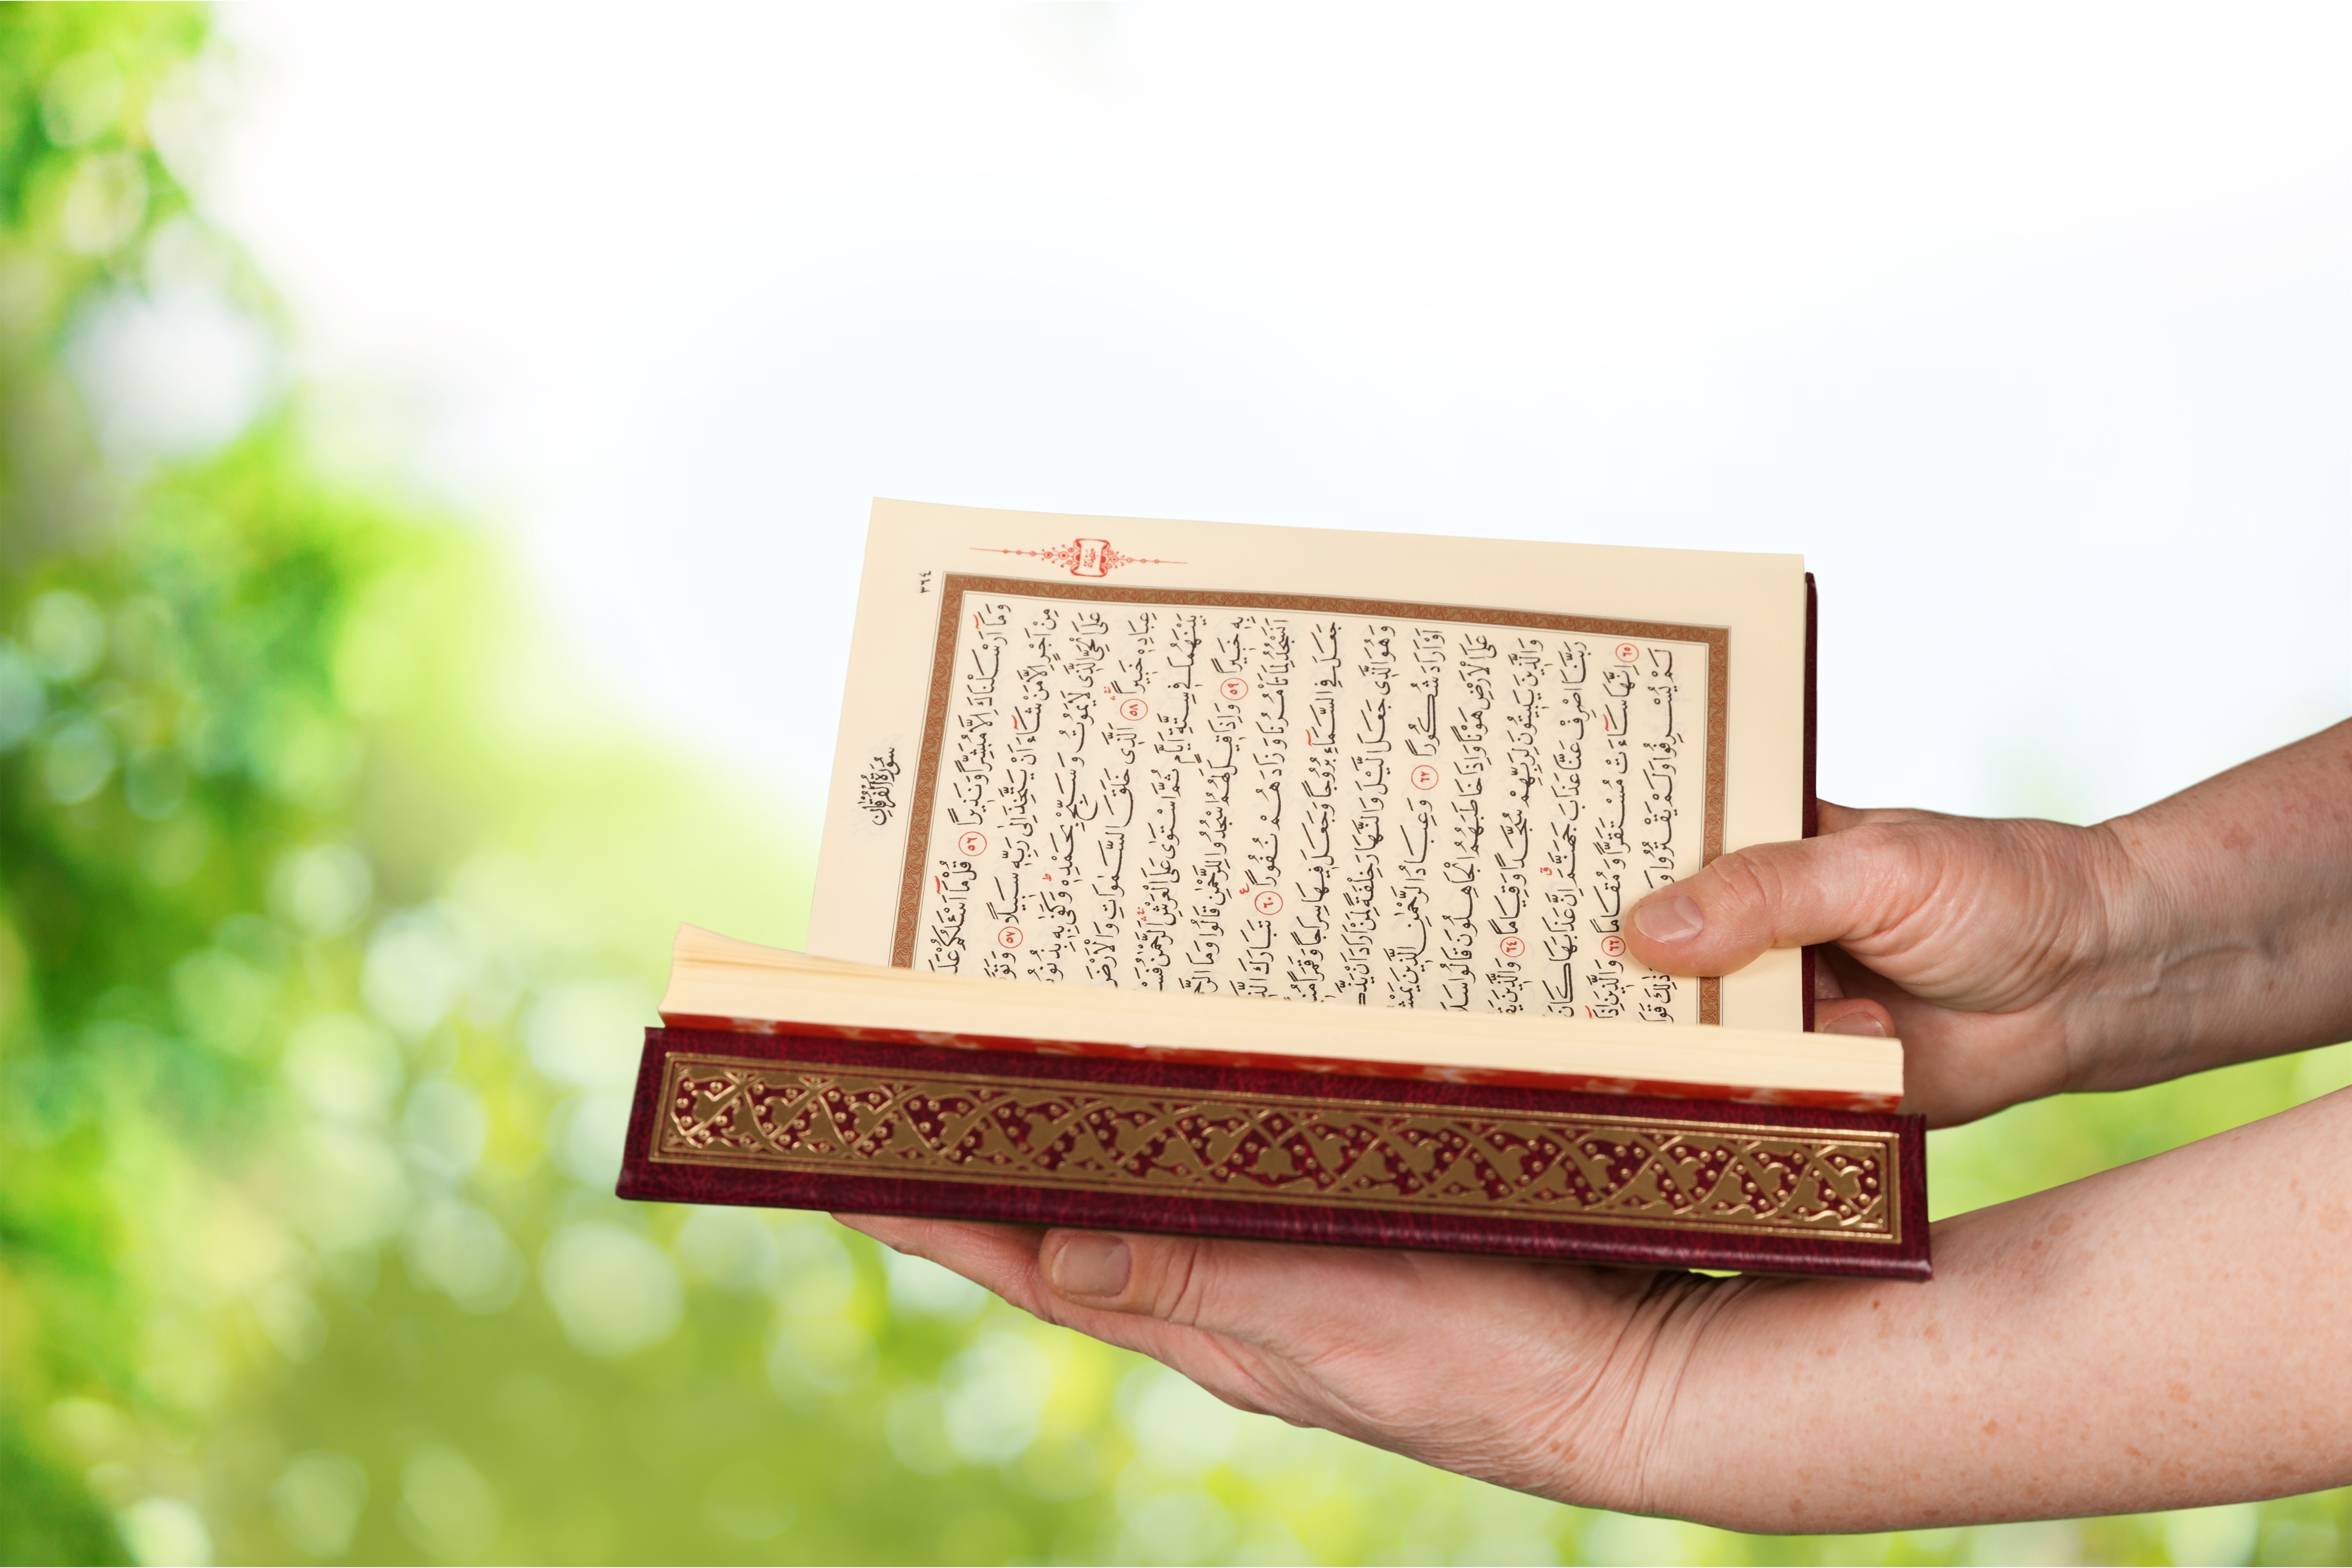 ٣٦٤
سُورَةُ الْفُرْقَانِ
وَمَٓا اَرْسَلْنَاكَ اِلَّا مُبَشِّرًا وَنَذ۪يرًا ﴿٥٦﴾ قُلْ مَٓا اَسْـَٔلُكُمْ عَلَ
مِنْ اَجْرٍ اِلَّا مَنْ شَٓاءَ اَنْ يَتَّخِذَ اِلٰى رَبِّه۪ سَب۪يلًا ﴿٥٧﴾ وَتَوَ
عَلَى الْحَيِّ الَّذ۪ي لَا يَمُوتُ وَسَبِّحْ بِحَمْدِه۪ وَكَفٰى بِه۪ بِذُنُو
عِبَادِه۪ خَب۪يرًا ﴿٥٨﴾ اَلَّذ۪ي خَلَقَ السَّمٰوَاتِ وَالْاَرْضَ
بَيْنَهُمَا ف۪ي سِتَّةِ اَيَّامٍ ثُمَّ اسْتَوٰى عَلَى الْعَرْشِ اَلرَّحْمٰنُ فَسْـ
بِه۪ خَب۪يرًا ﴿٥٩﴾ وَاِذَا ق۪يلَ لَهُمُ اسْجُدُوا لِلرَّحْمٰنِ قَالُوا وَمَا الرَّحْ
اَنَسْجُدُ لِمَا تَأْمُرُنَا وَزَادَهُمْ نُفُورًا ﴿٦٠﴾ تَبَارَكَ الَّذ
جَعَلَ فِي السَّمَٓاءِ بُرُوجًا وَجَعَلَ ف۪يهَا سِرَاجًا وَقَمَرًا مُن
وَهُوَ الَّذ۪ي جَعَلَ الَّيْلَ وَالنَّهَارَ خِلْفَةً لِمَنْ اَرَادَ اَنْ يَذَّ
اَوْ اَرَادَ شُكُورًا ﴿٦٢﴾ وَعِبَادُ الرَّحْمٰنِ الَّذ۪ينَ يَمْشُ
عَلَى الْاَرْضِ هَوْنًا وَاِذَا خَاطَبَهُمُ الْجَاهِلُونَ قَالُوا سَلَا
وَالَّذ۪ينَ يَب۪يتُونَ لِرَبِّهِمْ سُجَّدًا وَقِيَامًا ﴿٦٤﴾ وَالَّذ۪ينَ يَقُ
رَبَّنَا اصْرِفْ عَنَّا عَذَابَ جَهَنَّمَ اِنَّ عَذَابَهَا كَانَ
﴿٦٥﴾ اِنَّهَا سَٓاءَتْ مُسْتَقَرًّا وَمُقَامًا ﴿٦٦﴾ وَالَّذ۪ينَ اِذَا
لَمْ يُسْرِفُوا وَلَمْ يَقْتُرُوا وَ ذٰلِكَ قَوَا